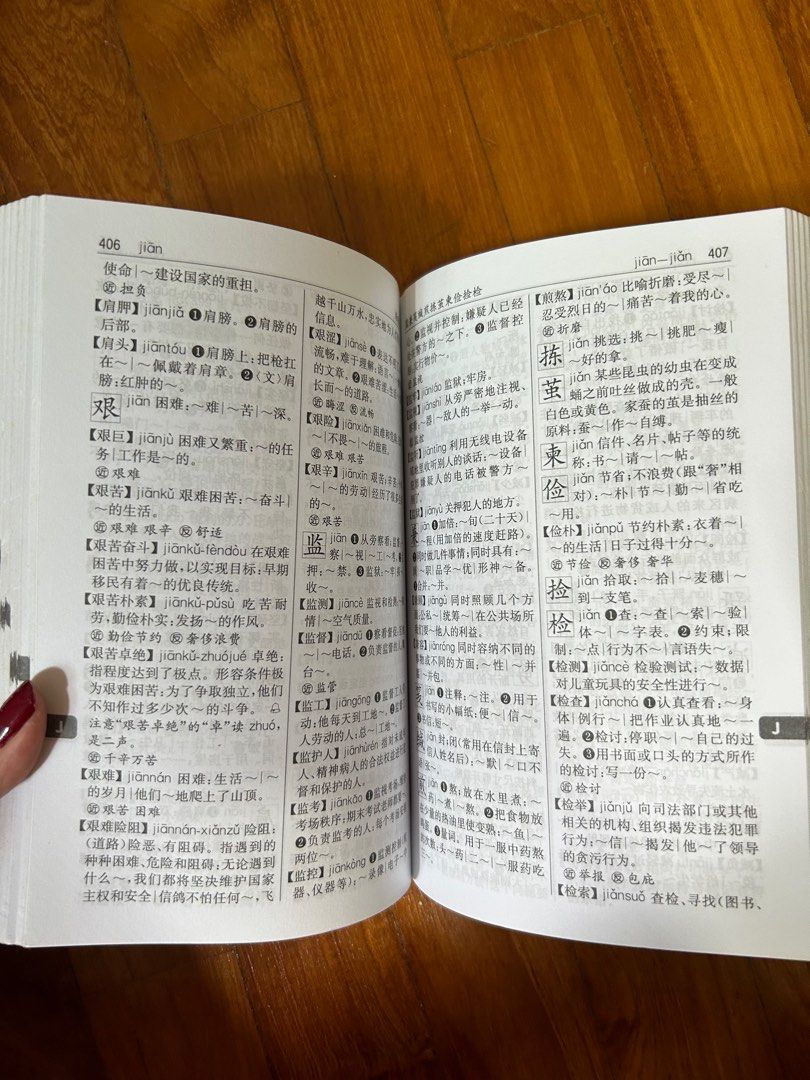 406 jiān
使命|～建设国家的重担。
近 担负
【肩胛】jiānjiǎ ❶肩膀。❷肩膀的
后部。
【肩头】jiāntóu ❶肩膀上:把枪扛
在～|～佩戴着肩章。❷〈文〉肩
膀:红肿的～。
艰 jiān 困难:～难|～苦|～深。
【艰巨】jiānjù 困难又繁重:～的任
务|工作是～的。
近 艰难
【艰苦】jiānkǔ 艰难困苦:～奋斗|
～的生活。
近 艰难 艰辛 反 舒适
【艰苦奋斗】jiānkǔ-fèndòu 在艰难
困苦中努力做,以实现目标:早期
移民有着～的优良传统。
【艰苦朴素】jiānkǔ-pǔsù 吃苦耐
劳,勤俭朴实:发扬～的作风。
近 勤俭节约 反 奢侈浪费
【艰苦卓绝】jiānkǔ-zhuójué 卓绝:
指程度达到了极点。形容条件极
为艰难困苦:为了争取独立,他们
不知作过多少次～的斗争。
注意“艰苦卓绝”的“卓”读 zhuó,
是二声。
近 千辛万苦
【艰难】jiānnán 困难:生活～|～
的岁月|他们～地爬上了山顶。
近 艰苦 困难
【艰难险阻】jiānnán-xiǎnzǔ 险阻:
(道路)险恶、有阻碍。指遇到的
种种困难、危险和阻碍:无论遇到
什么～,我们都将坚决维护国家
主权和安全|信鸽不怕任何～,飞
越千山万水,忠实地为
信息。
【艰涩】jiānsè
流畅,难于理解:语言
的文章。❷艰难苦涩:生
长而～的道路。
近 晦涩 反 流畅
【艰险】jiānxiǎn 困难和危险
～|不畏～|～的旅程。
近 艰难 艰苦
【艰辛】jiānxīn 艰苦:辛苦
～的劳动|经历了很多
的～。
近 艰苦
监 jiān ❶从旁察看:监
察|～视|～工|～考。❷
押:～禁。❸监狱:～牢|
收～。
【监测】jiāncè 监视和检测
情|～空气质量。
【监督】jiāndū ❶察看督促
～|～电话。❷负责监督的人
台～。
近 监管
【监工】jiāngōng ❶监督工人
动:他每天到工地～。❷
人劳动的人:总～|工地～。
【监护人】jiānhùrén 指对未成
人、精神病人的合法权益进行
督和保护的人。
【监考】jiānkǎo ❶监视考场,维持
考场秩序:期末考试老师都要～。
❷负责监考的人:每个考场
两位～。
【监控】jiānkòng ❶监测和控制
器、仪器等):～录像|电子～
jiān—jiǎn 407
煎拣茧柬俭捡检
监视并控制:嫌疑人已经
警方的～之下。❸监督控
物价～。
jiānláo 监狱;牢房。
jiānshì 从旁严密地注视、
～器|～敌人的一举一动。
jiāntīng 利用无线电设备
里收听别人的谈话:～设备|
嫌疑人的电话被警方～
了。
jiānyù 关押犯人的地方。
jiān ❶加倍:～旬(二十天)|
～程(用加倍的速度赶路)。
同时做几件事情;同时具有:～
～职|品学～优|形神～备。
合并:～并。
jiāngù 同时照顾几个方
公私～|统筹～|在公共场所
要～他人的利益。
jiānróng 同时容纳不同的
物或不同的方面:～性|～并
～并包。
❶注释:～注。❷用于
书写的小幅纸:便～|信～。
书信:短～。
jiān 封;闭(常用在信封上寄
信人姓名后):～默|～口不
❶熬;放在水里煮:～
药|～煮|～熬。❷把食物放
少量的热油里使变熟:～鱼|～
❸量词。用于一服中药熬
次数:头～药|二～|一服药吃
【煎熬】jiān'áo 比喻折磨:受尽～|
忍受烈日的～|痛苦～着我的心。
近 折磨
拣 jiǎn 挑选:挑～|挑肥～瘦|
～好的拿。
茧 jiǎn 某些昆虫的幼虫在变成
蛹之前吐丝做成的壳。一般
白色或黄色。家蚕的茧是抽丝的
原料:蚕～|作～自缚。
柬 jiǎn 信件、名片、帖子等的统
称:书～|请～|～帖。
俭 jiǎn 节省;不浪费(跟“奢”相
对):～朴|～节|勤～|省吃
～用。
【俭朴】jiǎnpǔ 节约朴素:衣着～|
～的生活|日子过得十分～。
近 节俭 反 奢侈 奢华
捡 jiǎn 拾取:～拾|～麦穗|～
到一支笔。
检 jiǎn ❶查:～查|～索|～验|
体～|～字表。❷约束;限
制:～点|行为不～|言语失～。
【检测】jiǎncè 检验测试:～数据|
对儿童玩具的安全性进行～。
【检查】jiǎnchá ❶认真查看:～身
体|例行～|把作业认真地～一
遍。❷检讨:停职～|～自己的过
失。❸用书面或口头的方式所作
的检讨:写一份～。
近 检讨
【检举】jiǎnjǔ 向司法部门或其他
相关的机构、组织揭发违法犯罪
行为:～信|～揭发|他～了领导
的贪污行为。
近 举报 反 包庇
【检索】jiǎnsuǒ 查检、寻找(图书、
J
J